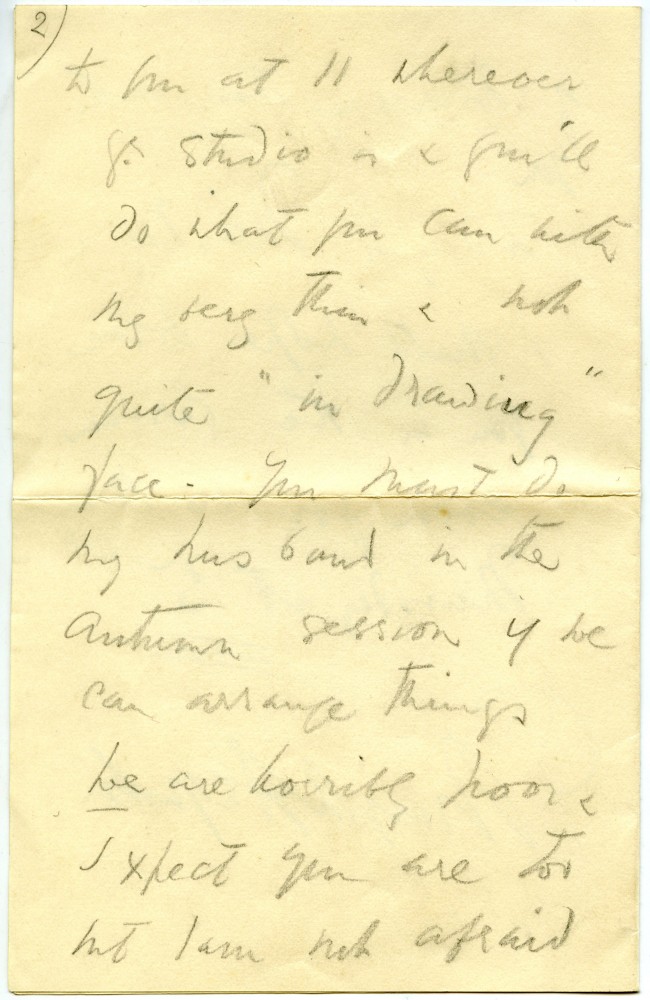 2)
to you at 11 wherever
yr studio is & you'll
do what you can with
my very thin & not
quite "in drawing"
face. You must do
my husband in the
Autumn session if we
can arrange things
We are horribly poor &
I xpect you are too
but I am not afraid